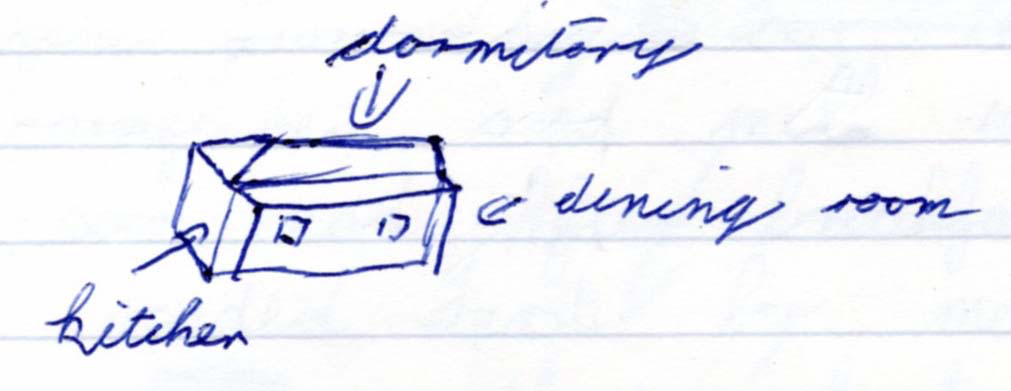 dormitory
dining room
kitchen